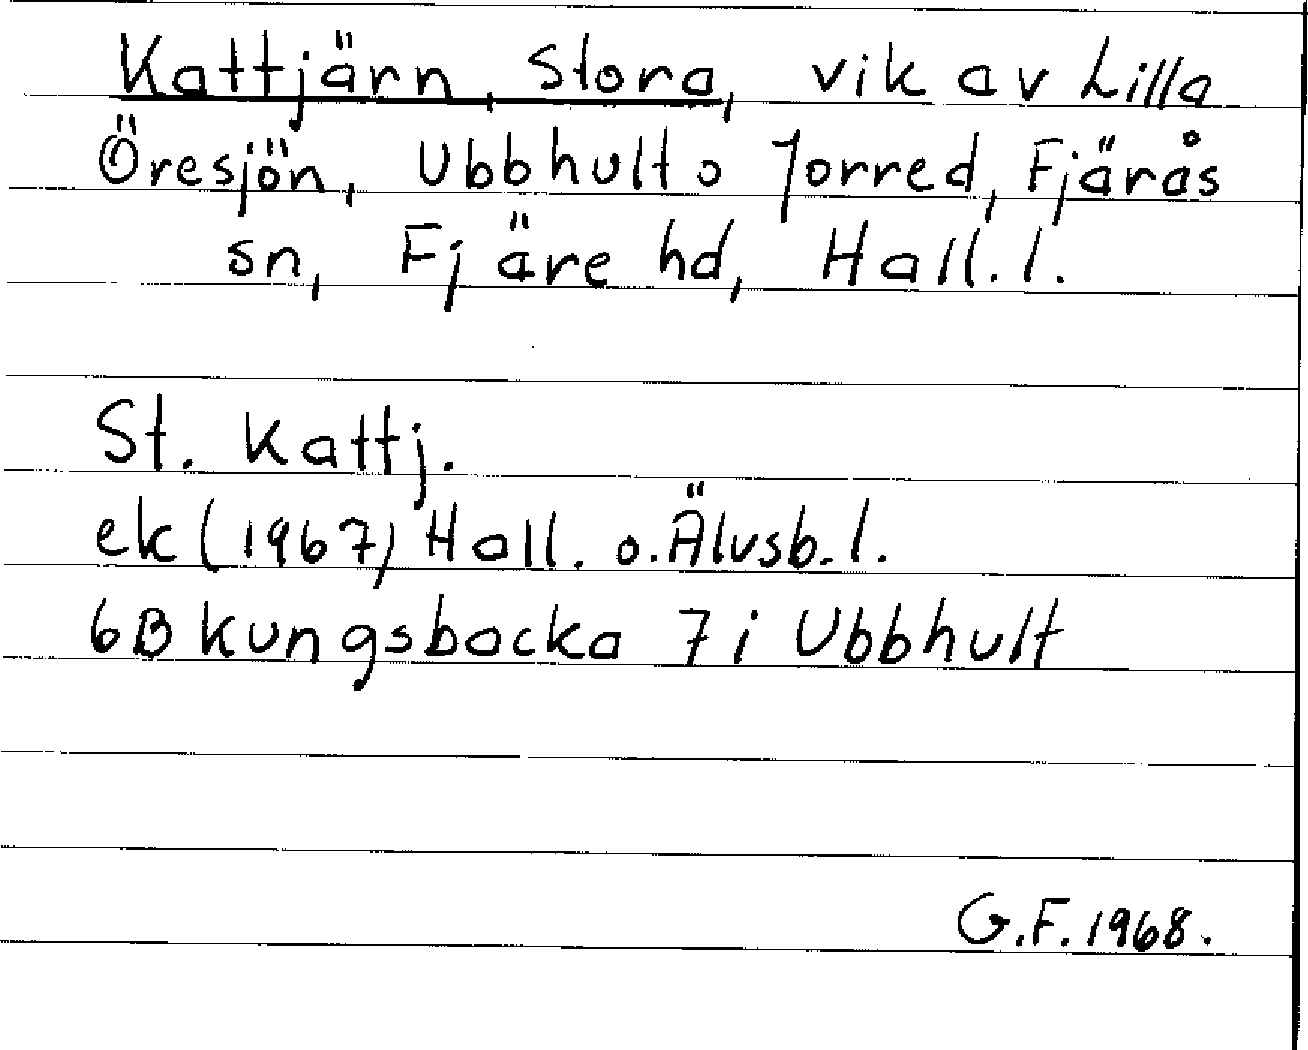 Kattjärn, Stora, vik av Lilla
Öresjön, Ubbhult o Jorred, Fjärås
sn, Fjäre hd, Hall. l.
St. Kattj.
ek (1967) Hall. o. Älvsb. l.
6B Kungsbacka 7 i Ubbhult
G.F. 1968.